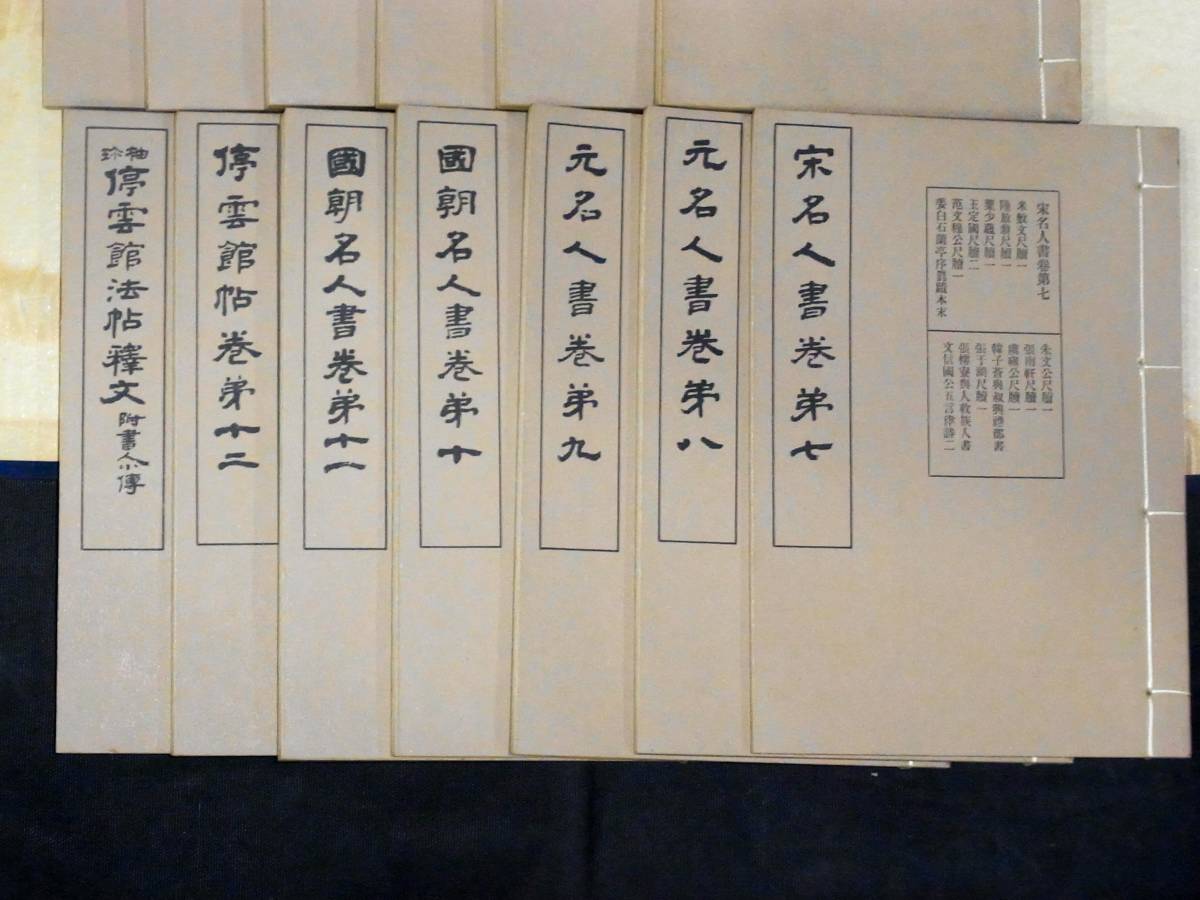 宋名人書卷第七
米敷文尺牘一
陸放翁尺牘一
葉少蘊尺牘一
王定國尺牘二
范文穆公尺牘一
姜白石蘭亭序眞蹟本末
朱文公尺牘一
張南軒尺牘一
虞雍公尺牘一
韓子蒼與叔興禮部書
張于湖尺牘一
張樗寮與人收族人書
文信國公五言律詩二
宋名人書卷弟七
元名人書卷弟八
元名人書卷弟九
國朝名人書卷弟十
國朝名人書卷弟十一
停雲館帖卷弟十二
袖珍停雲館法帖釋文附書人小傳